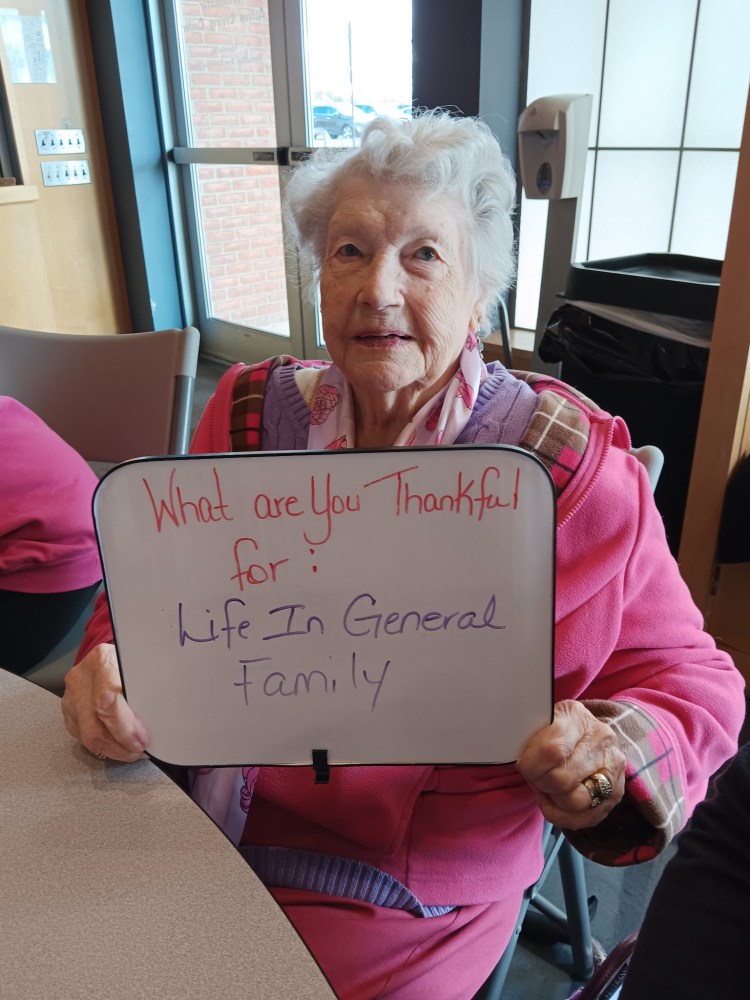 What are You Thankful
for:
Life In General
Family